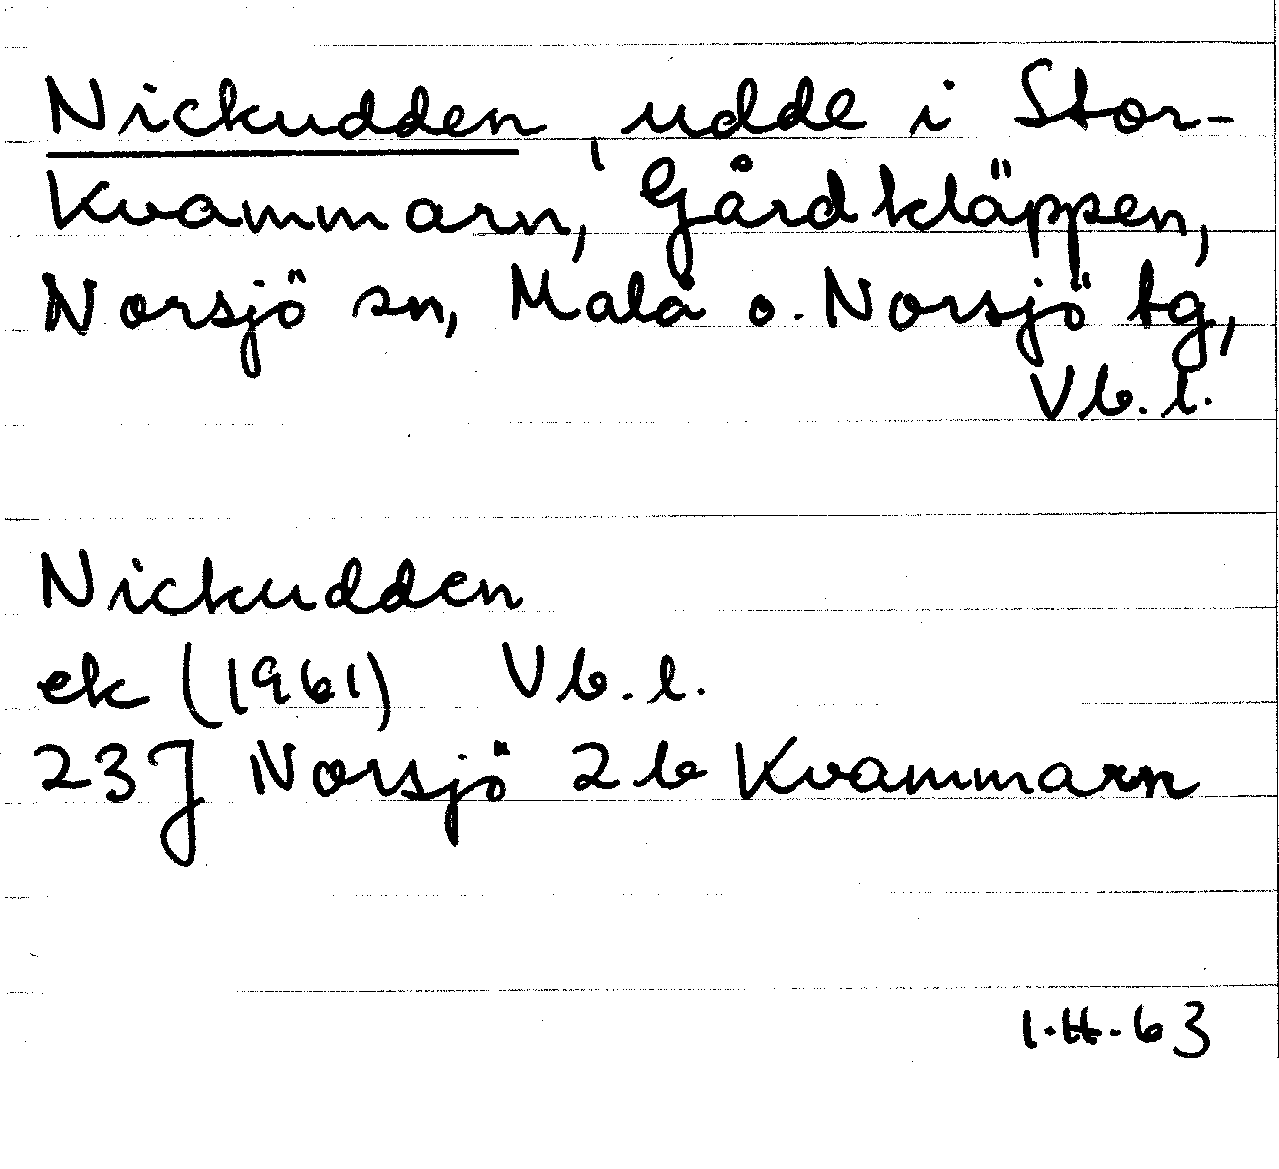 Nickudden, udde i Stor-
Kvammarn, Gårdkläppen,
Norsjö sn, Malå o. Norsjö tg,
Vb. l.
Nickudden
ek (1961) Vb. l.
23J Norsjö 2b Kvammarn